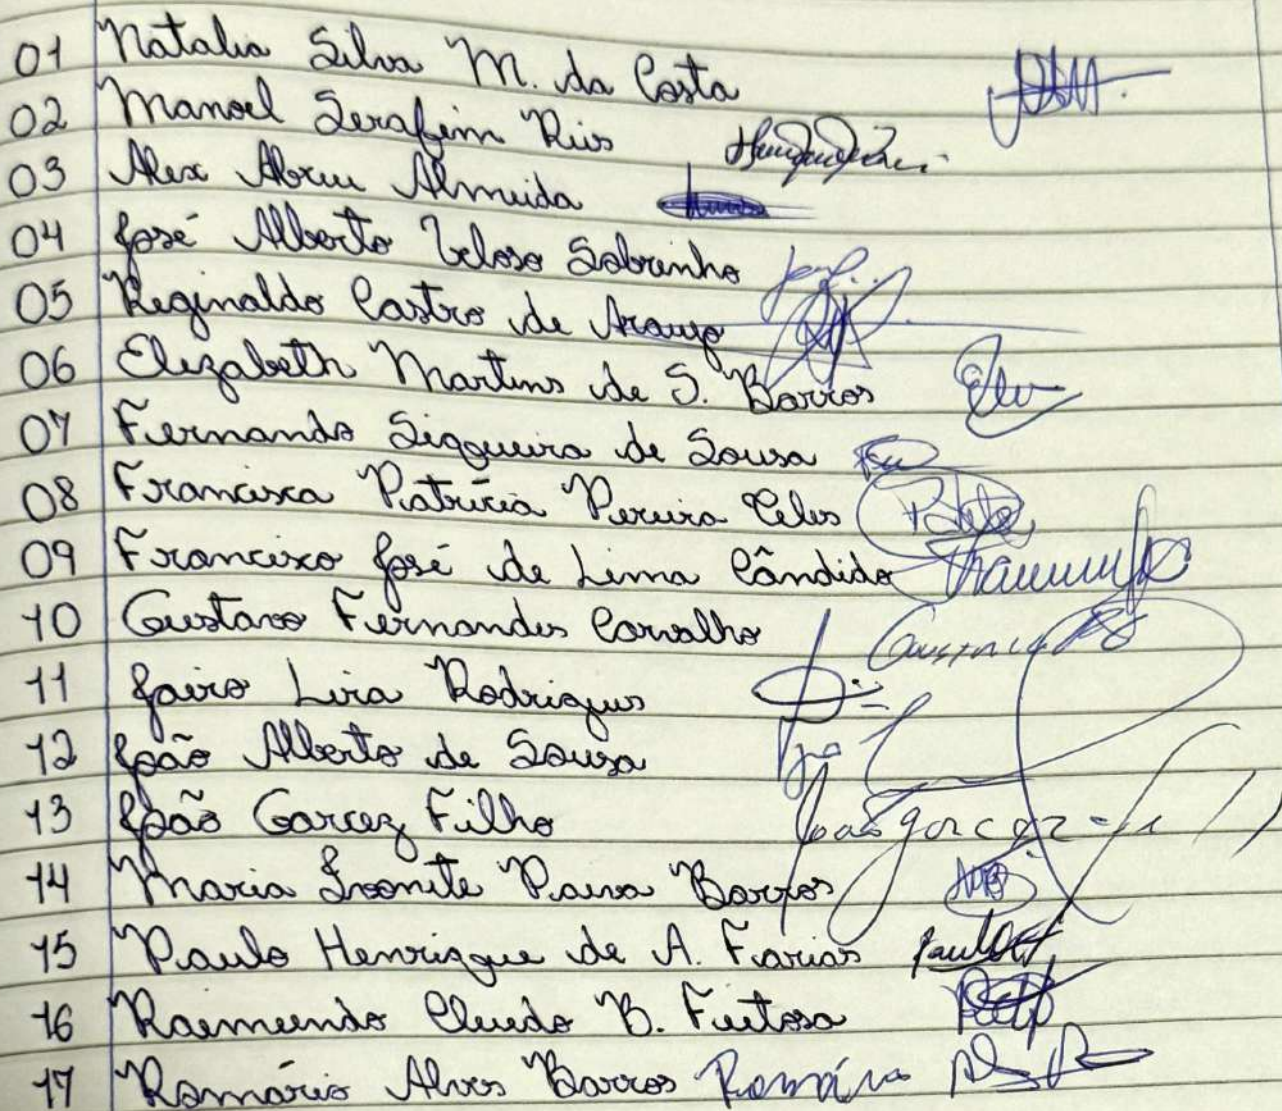 01 Natalia Silva M. da Costa
02 Manoel Serafim Reis
03 Alex Abreu Almeida
04 José Alberto Veloso Sobrinho
05 Reginaldo Castro de Araujo
06 Elizabeth Martins de S. Barros
07 Fernando Siqueira de Sousa
08 Francisca Patrícia Pereira Teles
09 Francisco José de Lima Cândido
10 Gustavo Fernandes Carvalho
11 Jairo Lira Rodrigues
12 João Alberto de Sousa
13 João Garcez Filho João garcez
14 Maria Ivonite Paiva Barros
15 Paulo Henrique de A. Farias
16 Raimundo B. Feitosa
17 Romário Alves Barros Romário